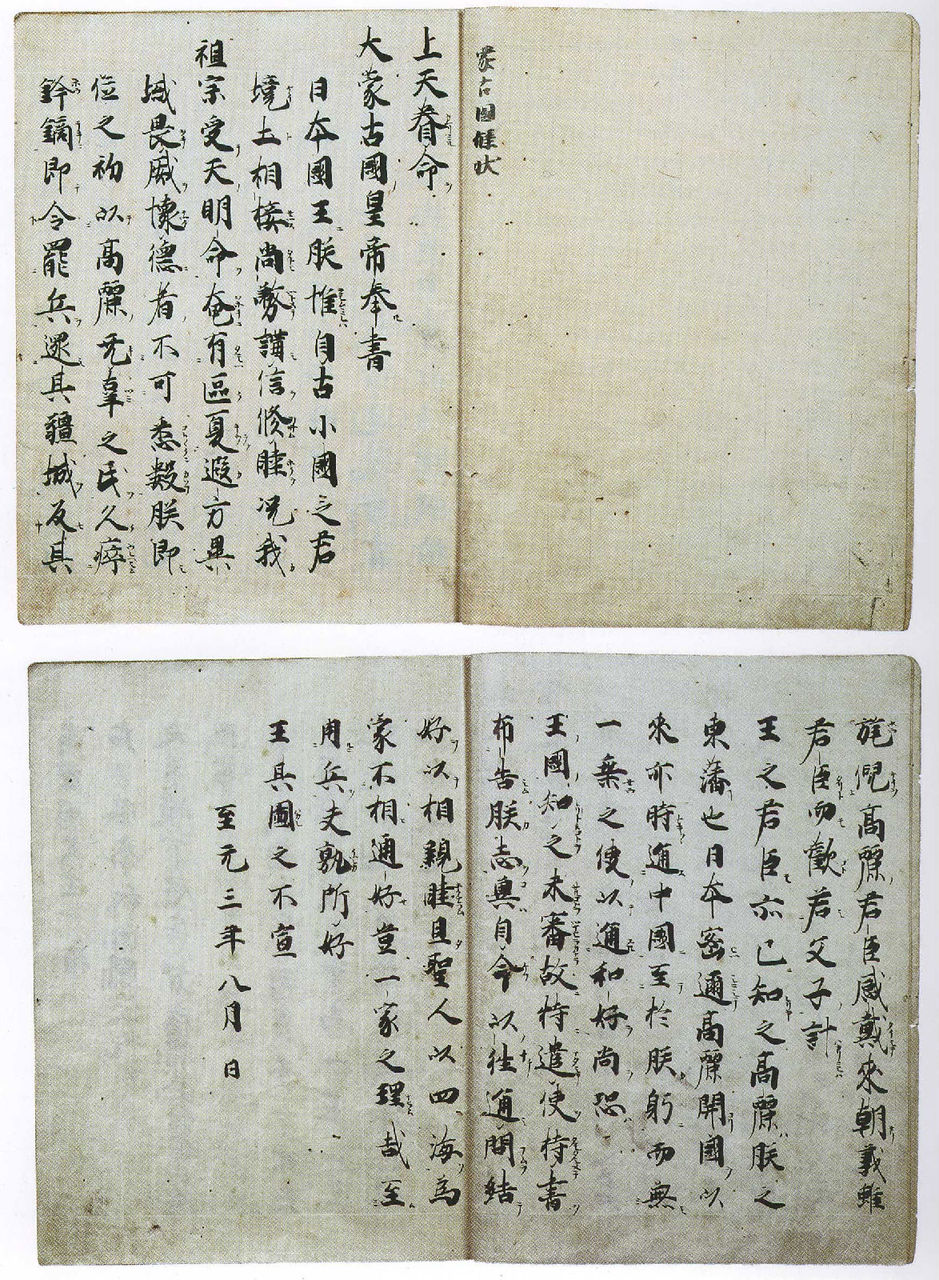 蒙古國牒状
上天眷命
大蒙古國皇帝奉書
日本國王朕惟自古小國之君
境土相接尚務講信修睦况我
祖宗受天明命奄有區夏遐方異
域畏威懐德者不可悉數朕即
位之初以高麗无辜之民久瘁
鋒鏑即令罷兵還其疆域反其
旄倪高麗君臣感戴來朝義雖
君臣而歡若父子計
王之君臣亦已知之高麗朕之
東藩也日本密邇高麗開國以
來亦時通中國至於朕躬而無
一乗之使以通和好尚恐
王國知之未審故特遣使持書
布告朕志冀自今以往通問結
好以相親睦且聖人以四海爲
家不相通好豈一家之理哉至
用兵夫孰所好
王其圖之不宣
至元三年八月 日